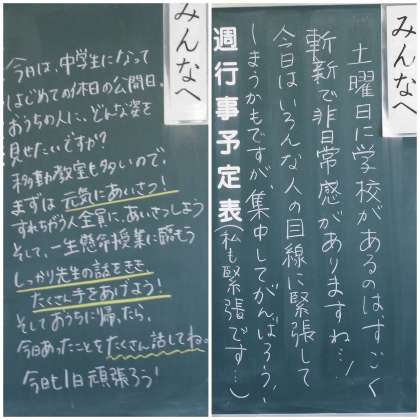 みんなへ
今日は、中学生になって
はじめての休日の公開日。
おうちの人に、どんな姿を
見せたいですか?
移動教室も多いので、
まずは元気にあいさつ!
すれちがう人全員に、あいさつしよう
そして、一生懸命授業に臨もう
しっかり先生の話をきき
たくさん手をあげよう!
そしておうちに帰ったら、
今日あったことをたくさん話してね。
今日も1日頑張ろう!
みんなへ
土曜日に学校があるのは、すごく
斬新で非日常感がありますね…!
今日はいろんな人の目線に緊張して
しまうかもですが、集中してがんばろう!
(私も緊張です…)
週行事予定表